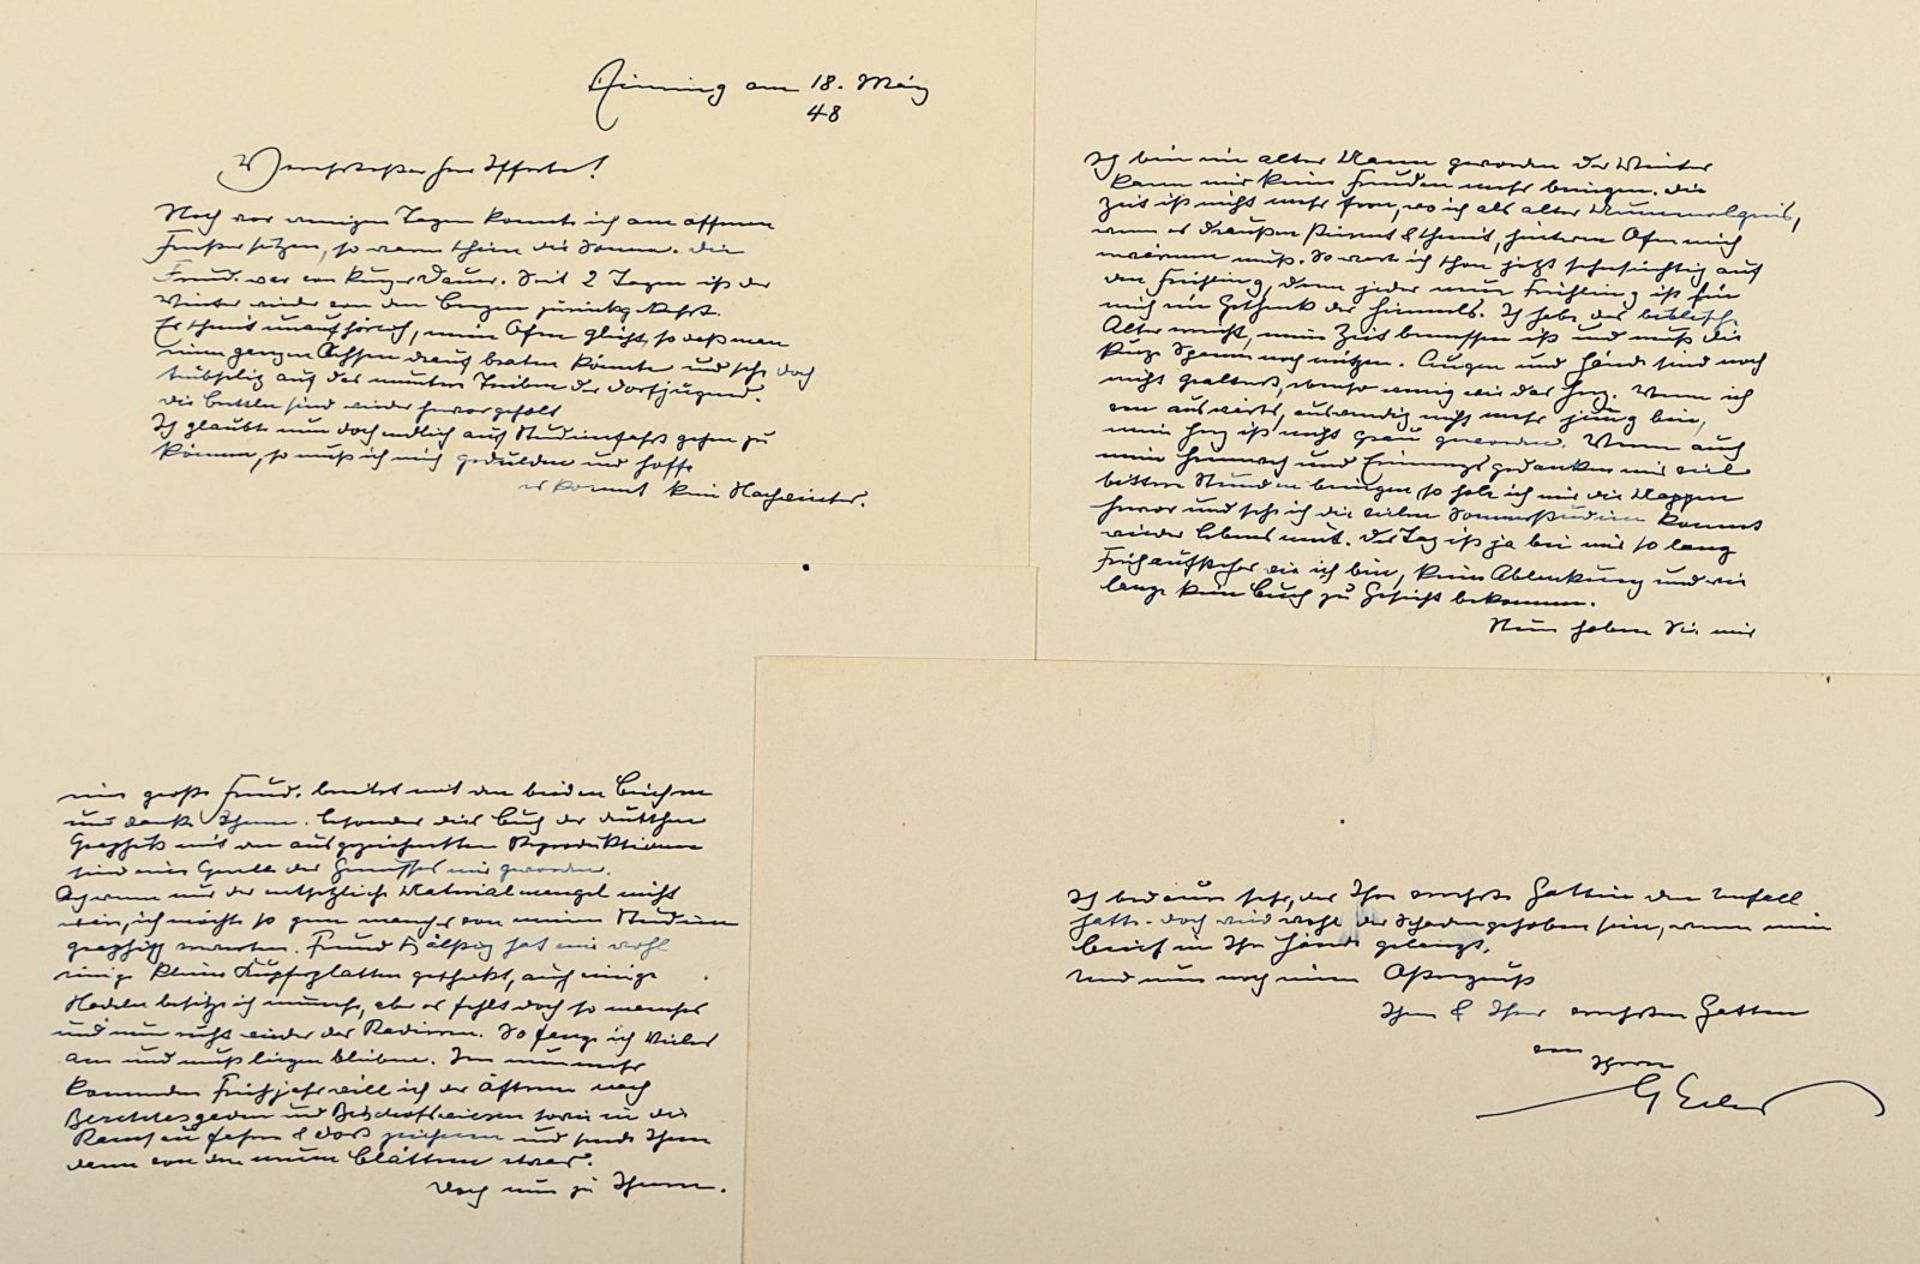 Ainring am 18. März
48
Verehrtester Herr
Noch vor wenigen Tagen konnte ich am offenen
Fenster sitzen, so warm schien die Sonne. Die
Freude war von kurzer Dauer. Seit 2 Tagen ist der
Winter wieder von den Bergen zurückgekehrt.
Es schneit unaufhörlich, mein Ofen glüht, so daß man
einen ganzen Ochsen drauf braten könnte und sehe doch
trübselig auf das muntere Treiben der Dorfjugend.
Die sind wieder hervorgeholt
Ich glaubte nun doch endlich auf Studienfahrt gehen zu
können, so muß ich mich gedulden und hoffe
es kommt kein Nachwinter.
Ich bin ein alter Mann geworden der Winter
kann mir keine Freuden mehr bringen. Die
Zeit ist nicht mehr fern, wo ich als alter
wenn es draußen stürmt & schneit, hinterm Ofen mich
wärmen muß. So warte ich schon jetzt sehnsüchtig auf
den Frühling, denn jeder neue Frühling ist für
mich ein Geschenk des Himmels. Ich habe das biblische
Alter erreicht, meine Zeit bemessen ist und muß die
kurze Spanne noch nützen. Augen und Hände sind noch
nicht gealtert, ebenso wenig wie das Herz. Wenn ich
von auswärts, auswendig nicht mehr jung bin,
mein Herz ist nicht grau geworden. Wenn auch
mein Heimweh und Erinnerungsgedanken mir viele
bittere Stunden bringen so hole ich mir die Mappen
hervor und sehe ich die vielen Sommerstudien kommt
wieder Lebensmut. Der Tag ist ja bei mir so lang
Frühaufsteher wie ich bin, keine Ablenkung und wie
lange kein Buch zu Gesicht bekommen.
Nun haben Sie mir
eine große Freude bereitet mit den beiden Büchern
und danke Ihnen. Besonders dies Buch der deutschen
Graphik mit den ausgezeichneten Reproduktionen
sind eine Quelle des Genusses mir geworden.
Ach wenn nur der entsetzliche Materialmangel nicht
wäre, ich möchte so gern manches von meinen Studien
graphisch verwerten. Freund hat mir wohl
einige kleine Kupferplatten geschickt, auch einige
Nadeln besitze ich nunmehr, aber es fehlt doch so manches
und nun ruht wieder das Radieren. So fange ich Vieles
an und muß liegen bleiben. Im nunmehr
kommenden Frühjahr will ich des öfteren nach
Berchtesgaden und Bischofswiesen sowie in die
Ramsau fahren & dort zeichnen und sende Ihnen
dann von den neuen Blättern etwas.
Doch nun zu Ihnen.
Ich bedaure sehr, das Ihre verehrte Gattin den Unfall
hatte. Doch wird wohl der Schaden gehoben sein, wenn mein
Brief in Ihre Hände gelangt.
Und nun noch einen Ostergruß
Ihnen & Ihrer verehrten Gattin
von
Ihrem